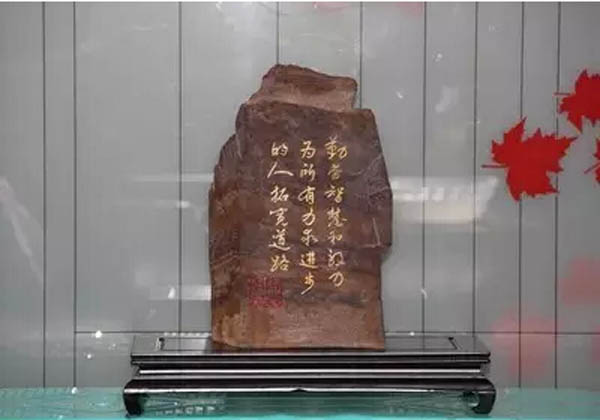 勤劳智慧和毅力
为所有力求进步
的人拓宽道路